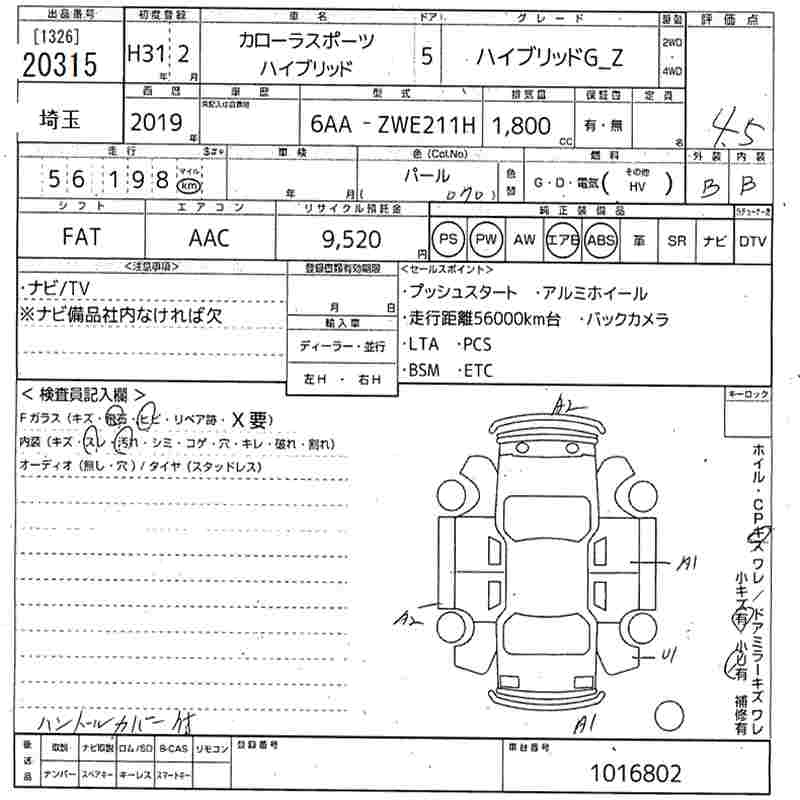 出品番号 初度登録 車名 ドア グレード 駆動 評価点
[1326] 20315 H31年 2月 カローラスポーツ 5 ハイブリッドG_Z 2WD・4WD 4.5
ハイブリッド
西暦 車歴 型式 排気量 保証書 定員
埼玉 2019年 6AA - ZWE211H 1,800CC 有・無 名
走行 車検 色(Col.No) 燃料 外装 内装
56198 マイル km 年 月 パール (070) 色替 G・D・電気(その他 HV) B B
シフト エアコン リサイクル預託金 純正装備品
FAT AAC 9,520円 PS PW AW エアB ABS 革 SR ナビ DTV
<注意事項> 登録書類有効期限 <セールスポイント>
・ナビ/TV 月 日 ・プッシュスタート ・アルミホイール
※ナビ備品社内なければ欠 輸入車 ・走行距離56000km台 ・バックカメラ
ディーラー・並行 ・LTA ・PCS
左H ・ 右H ・BSM ・ETC
<検査員記入欄> キーロック
Fガラス(キズ・飛石・ヒビ・リペア跡・X要)
内装(キズ・スレ・汚れ・シミ・コゲ・穴・キレ・破れ・割れ)
オーディオ(無し・穴)/タイヤ(スタッドレス)
A2
A1
A2
U1
A1
ホイル・CPキズワレ/ドアミラーキズワレ
小キズ有 小U有 補修有
ハンドルカバー付
後送品 取説 ナビ取説 ロム/SD B-CAS リモコン 登録番号 車台番号
ナンバー スペアキー キーレス スマートキー 1016802